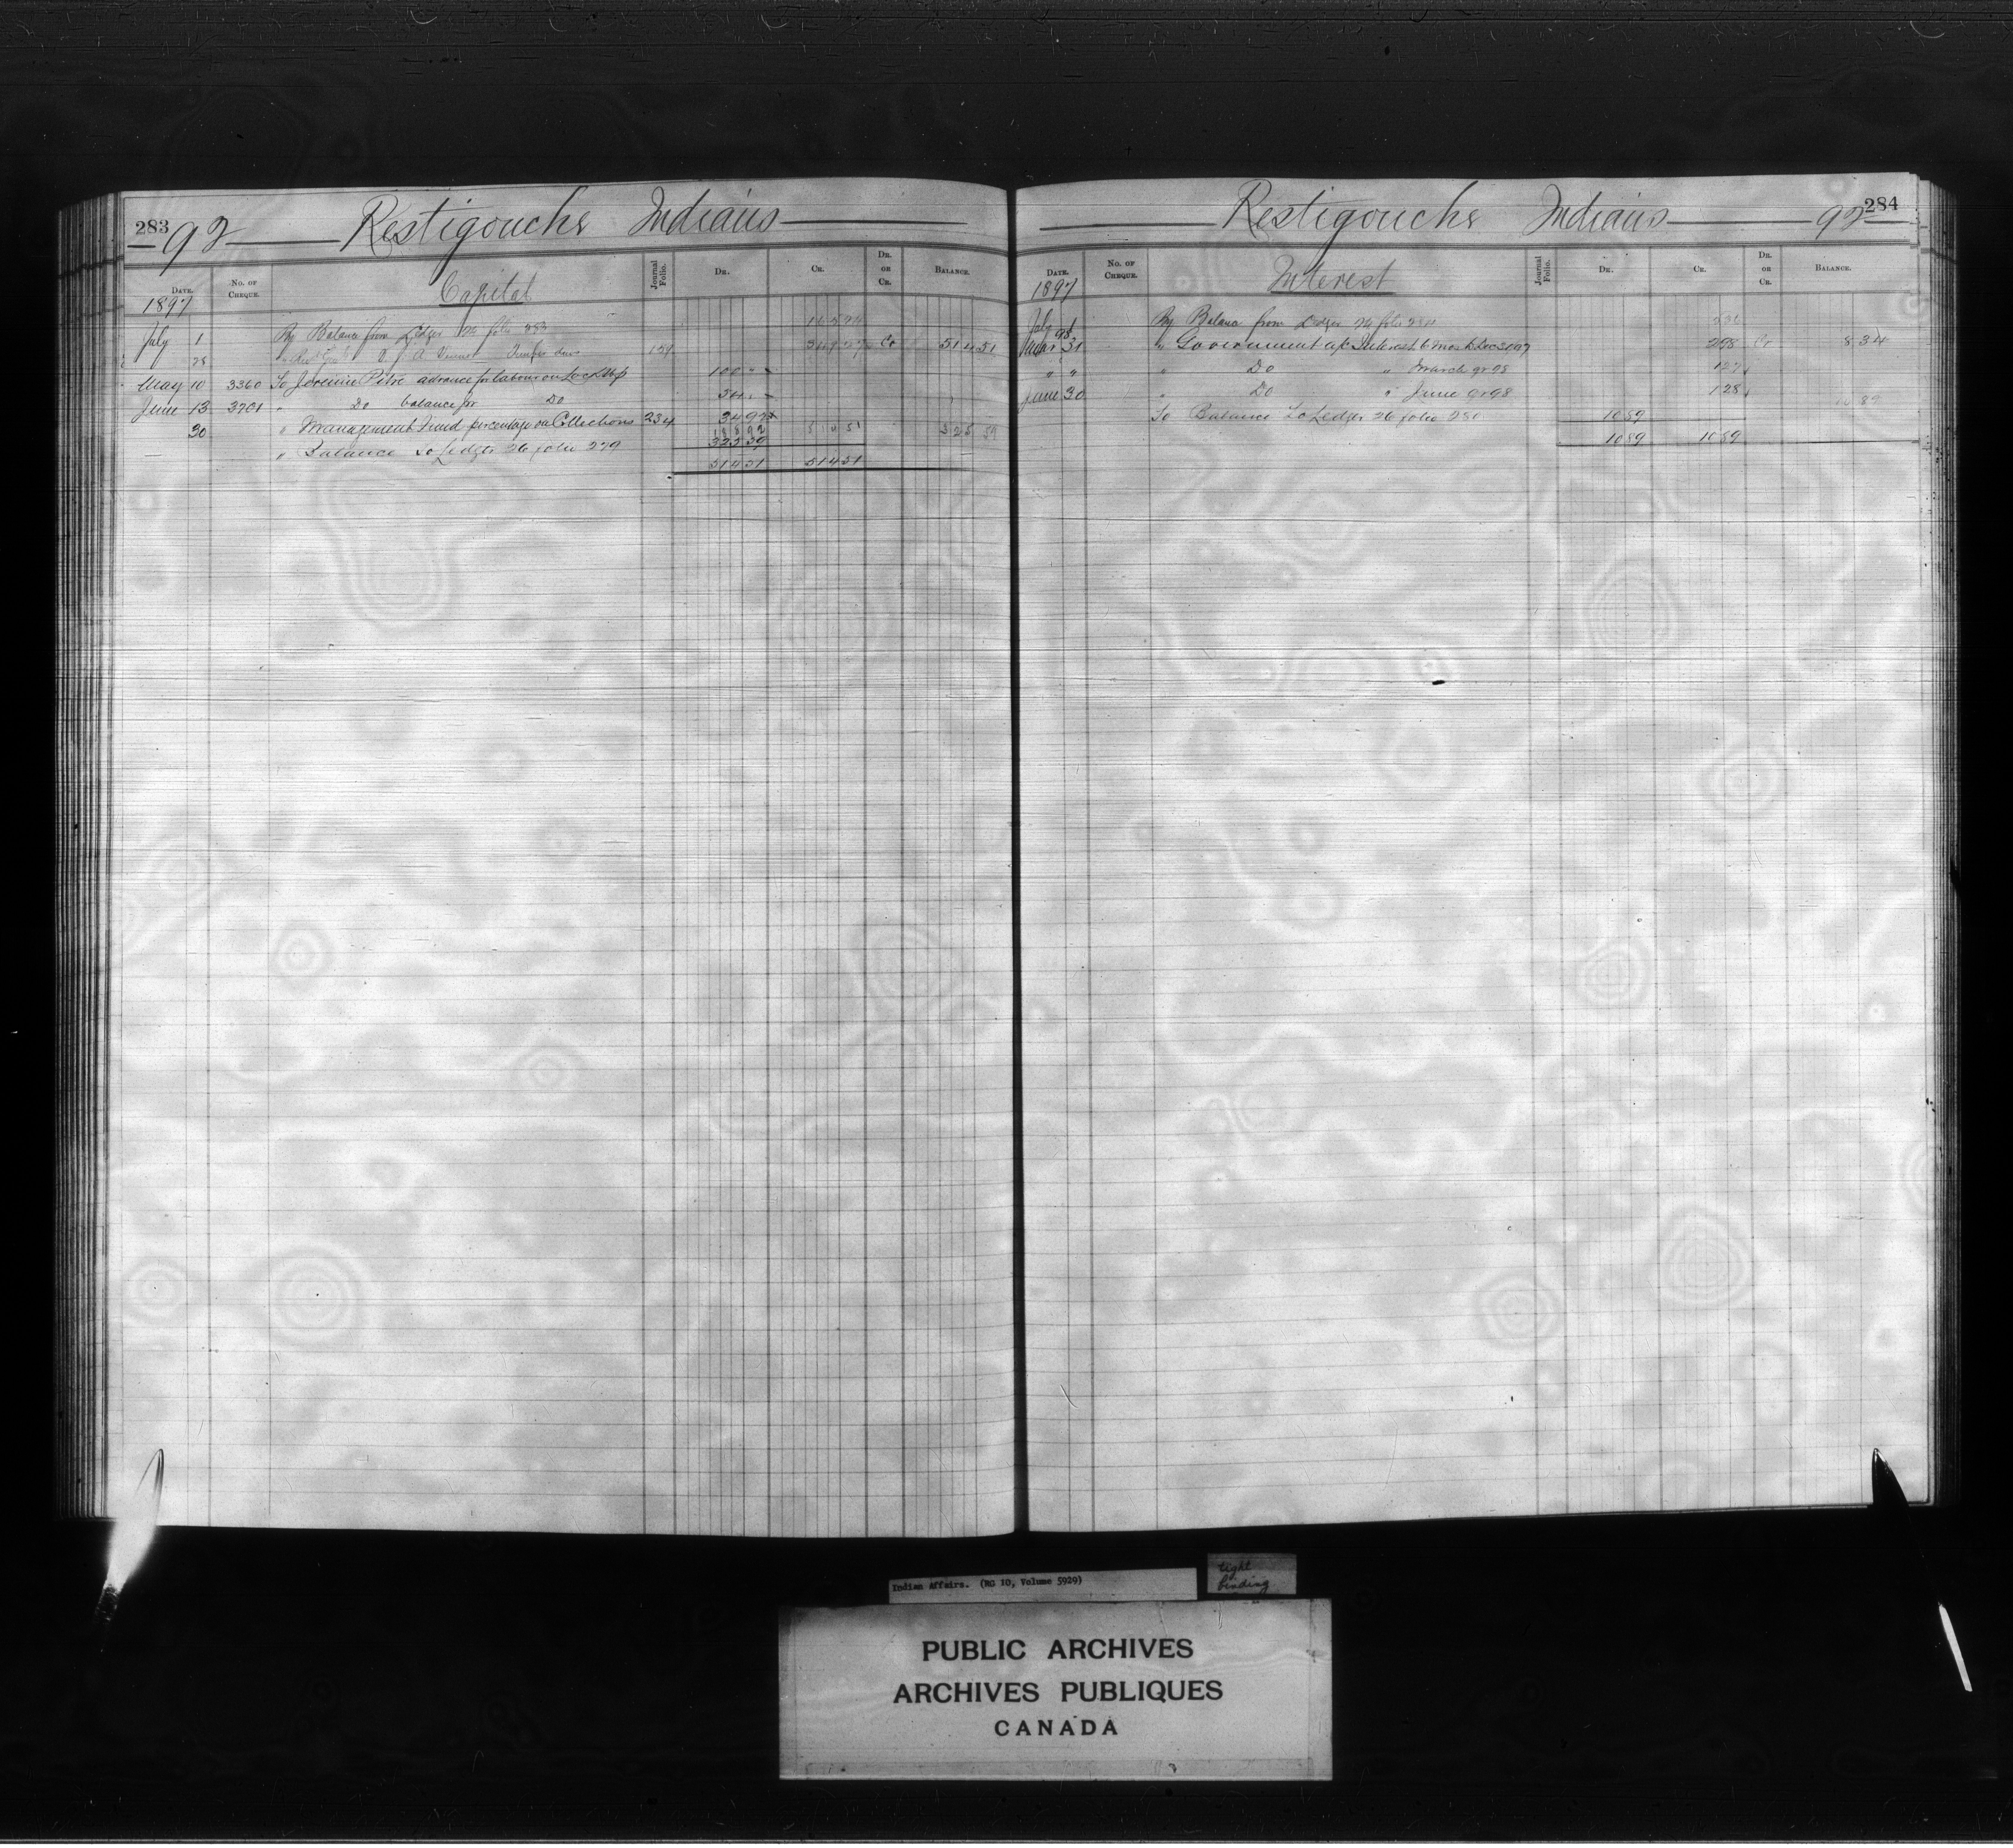 283 92 Restigouche Indians
DATE. No. OF CHEQUE. Capital Journal Folio. DR. CR. DR. OR CR. BALANCE.
1897
July 1 By Balance from Ledger folio 283
28 Timber dues 159 Cr 514 51
May 10 3360 To Jeremie Pitre advance for labour on 100 " -
June 13 3701 " Do balance for Do
30 " Management Fund percentage on Collections 234 34 97 514 51 325 59
188 92
" Balance to Ledger 26 folio 279 325 59
514 51 514 51
Restigouche Indians 92 284
DATE. No. OF CHEQUE. Interest Journal Folio. DR. CR. DR. OR CR. BALANCE.
1897
July 1 By Balance from Ledger folio 284
98
31 " Government a/c Interest 6 mos to Dec 30 97 2 98 Cr 8 34
" " " Do " March qr 98 1 27
June 30 " Do " June qr 98 1 28 10 89
To Balance to Ledger 26 folio 280 10 89
10 89 10 89
Indian Affairs. (RG 10, Volume 5929)
tight
binding
PUBLIC ARCHIVES
ARCHIVES PUBLIQUES
CANADA